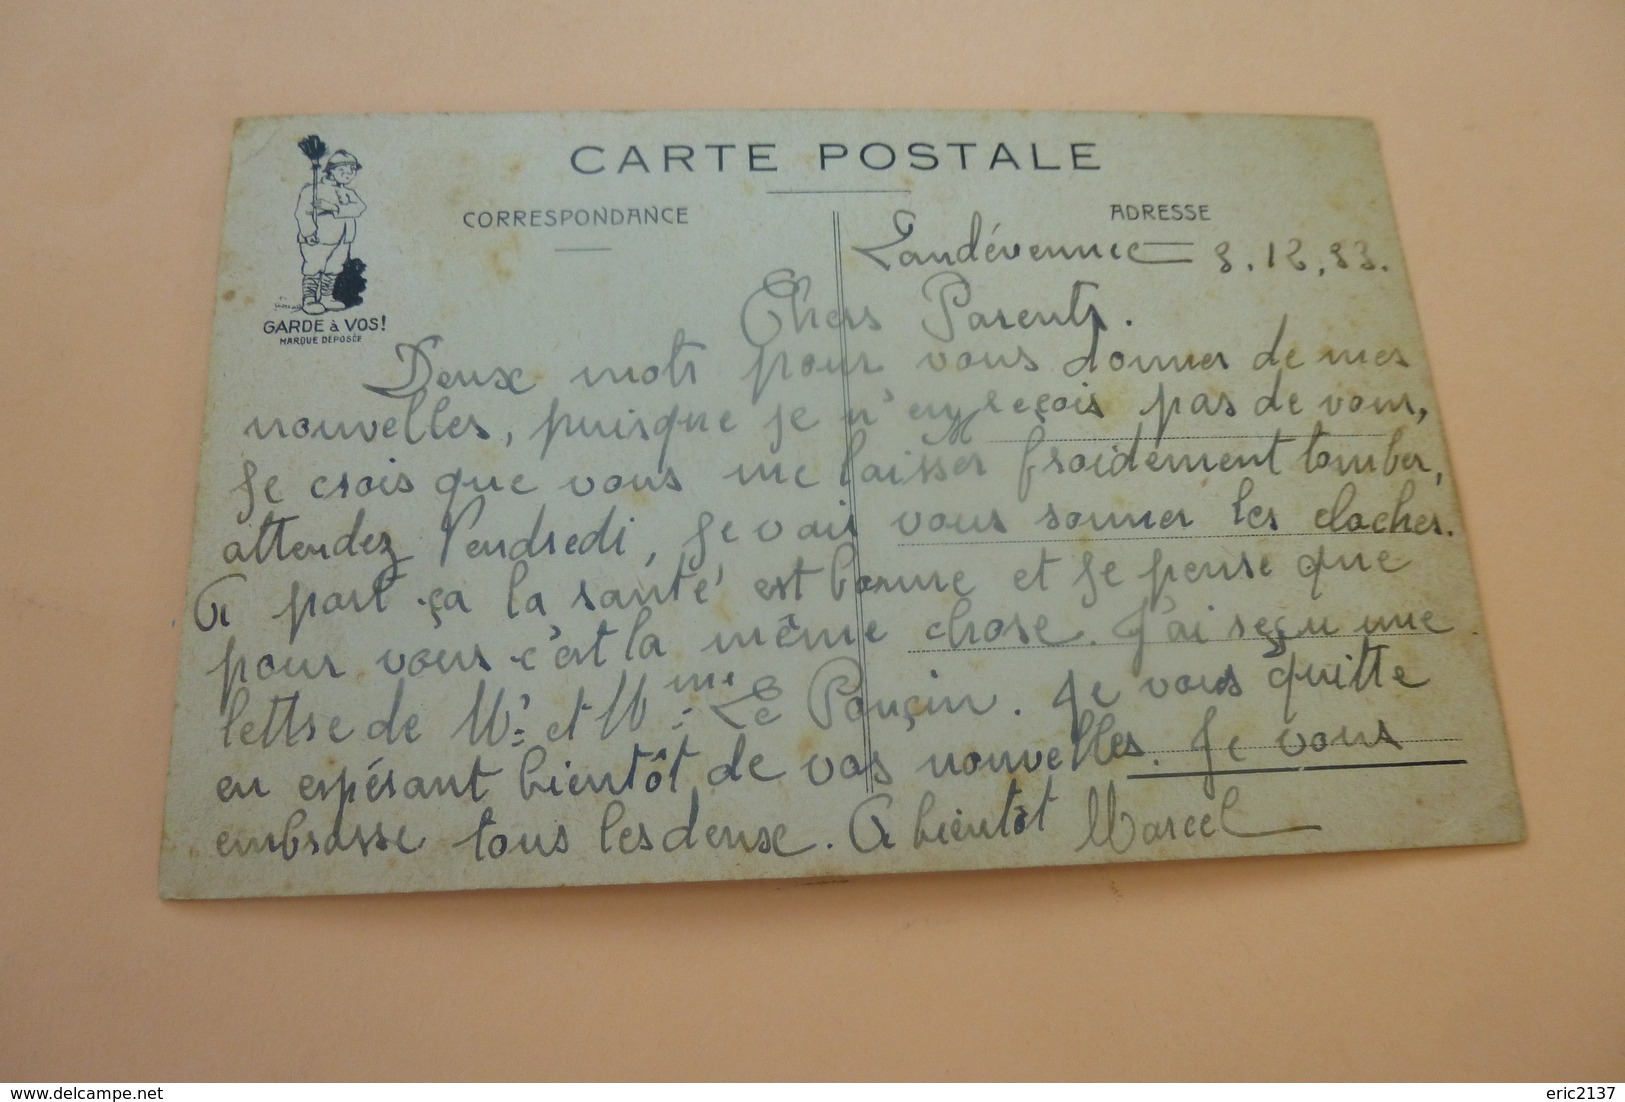 CARTE POSTALE
CORRESPONDANCE
ADRESSE
GARDE à VOS!
MARQUE DÉPOSÉE
Landévennec 3.12.33.
Chers Parents.
Deux mots pour vous donner de mes
nouvelles, puisque je n'en reçois pas de vous,
Je crois que vous me laisser froidement tomber,
attendez Vendredi, je vais vous sonner les cloches.
A part ça la santé est bonne et je pense que
pour vous c'est la même chose. J'ai reçu une
lettre de Mr et Mme Le Ponçin. Je vous quitte
en espérant bientôt de vos nouvelles. Je vous
embrasse tous les deux. A bientôt Marcel
delcampe.net
eric2137